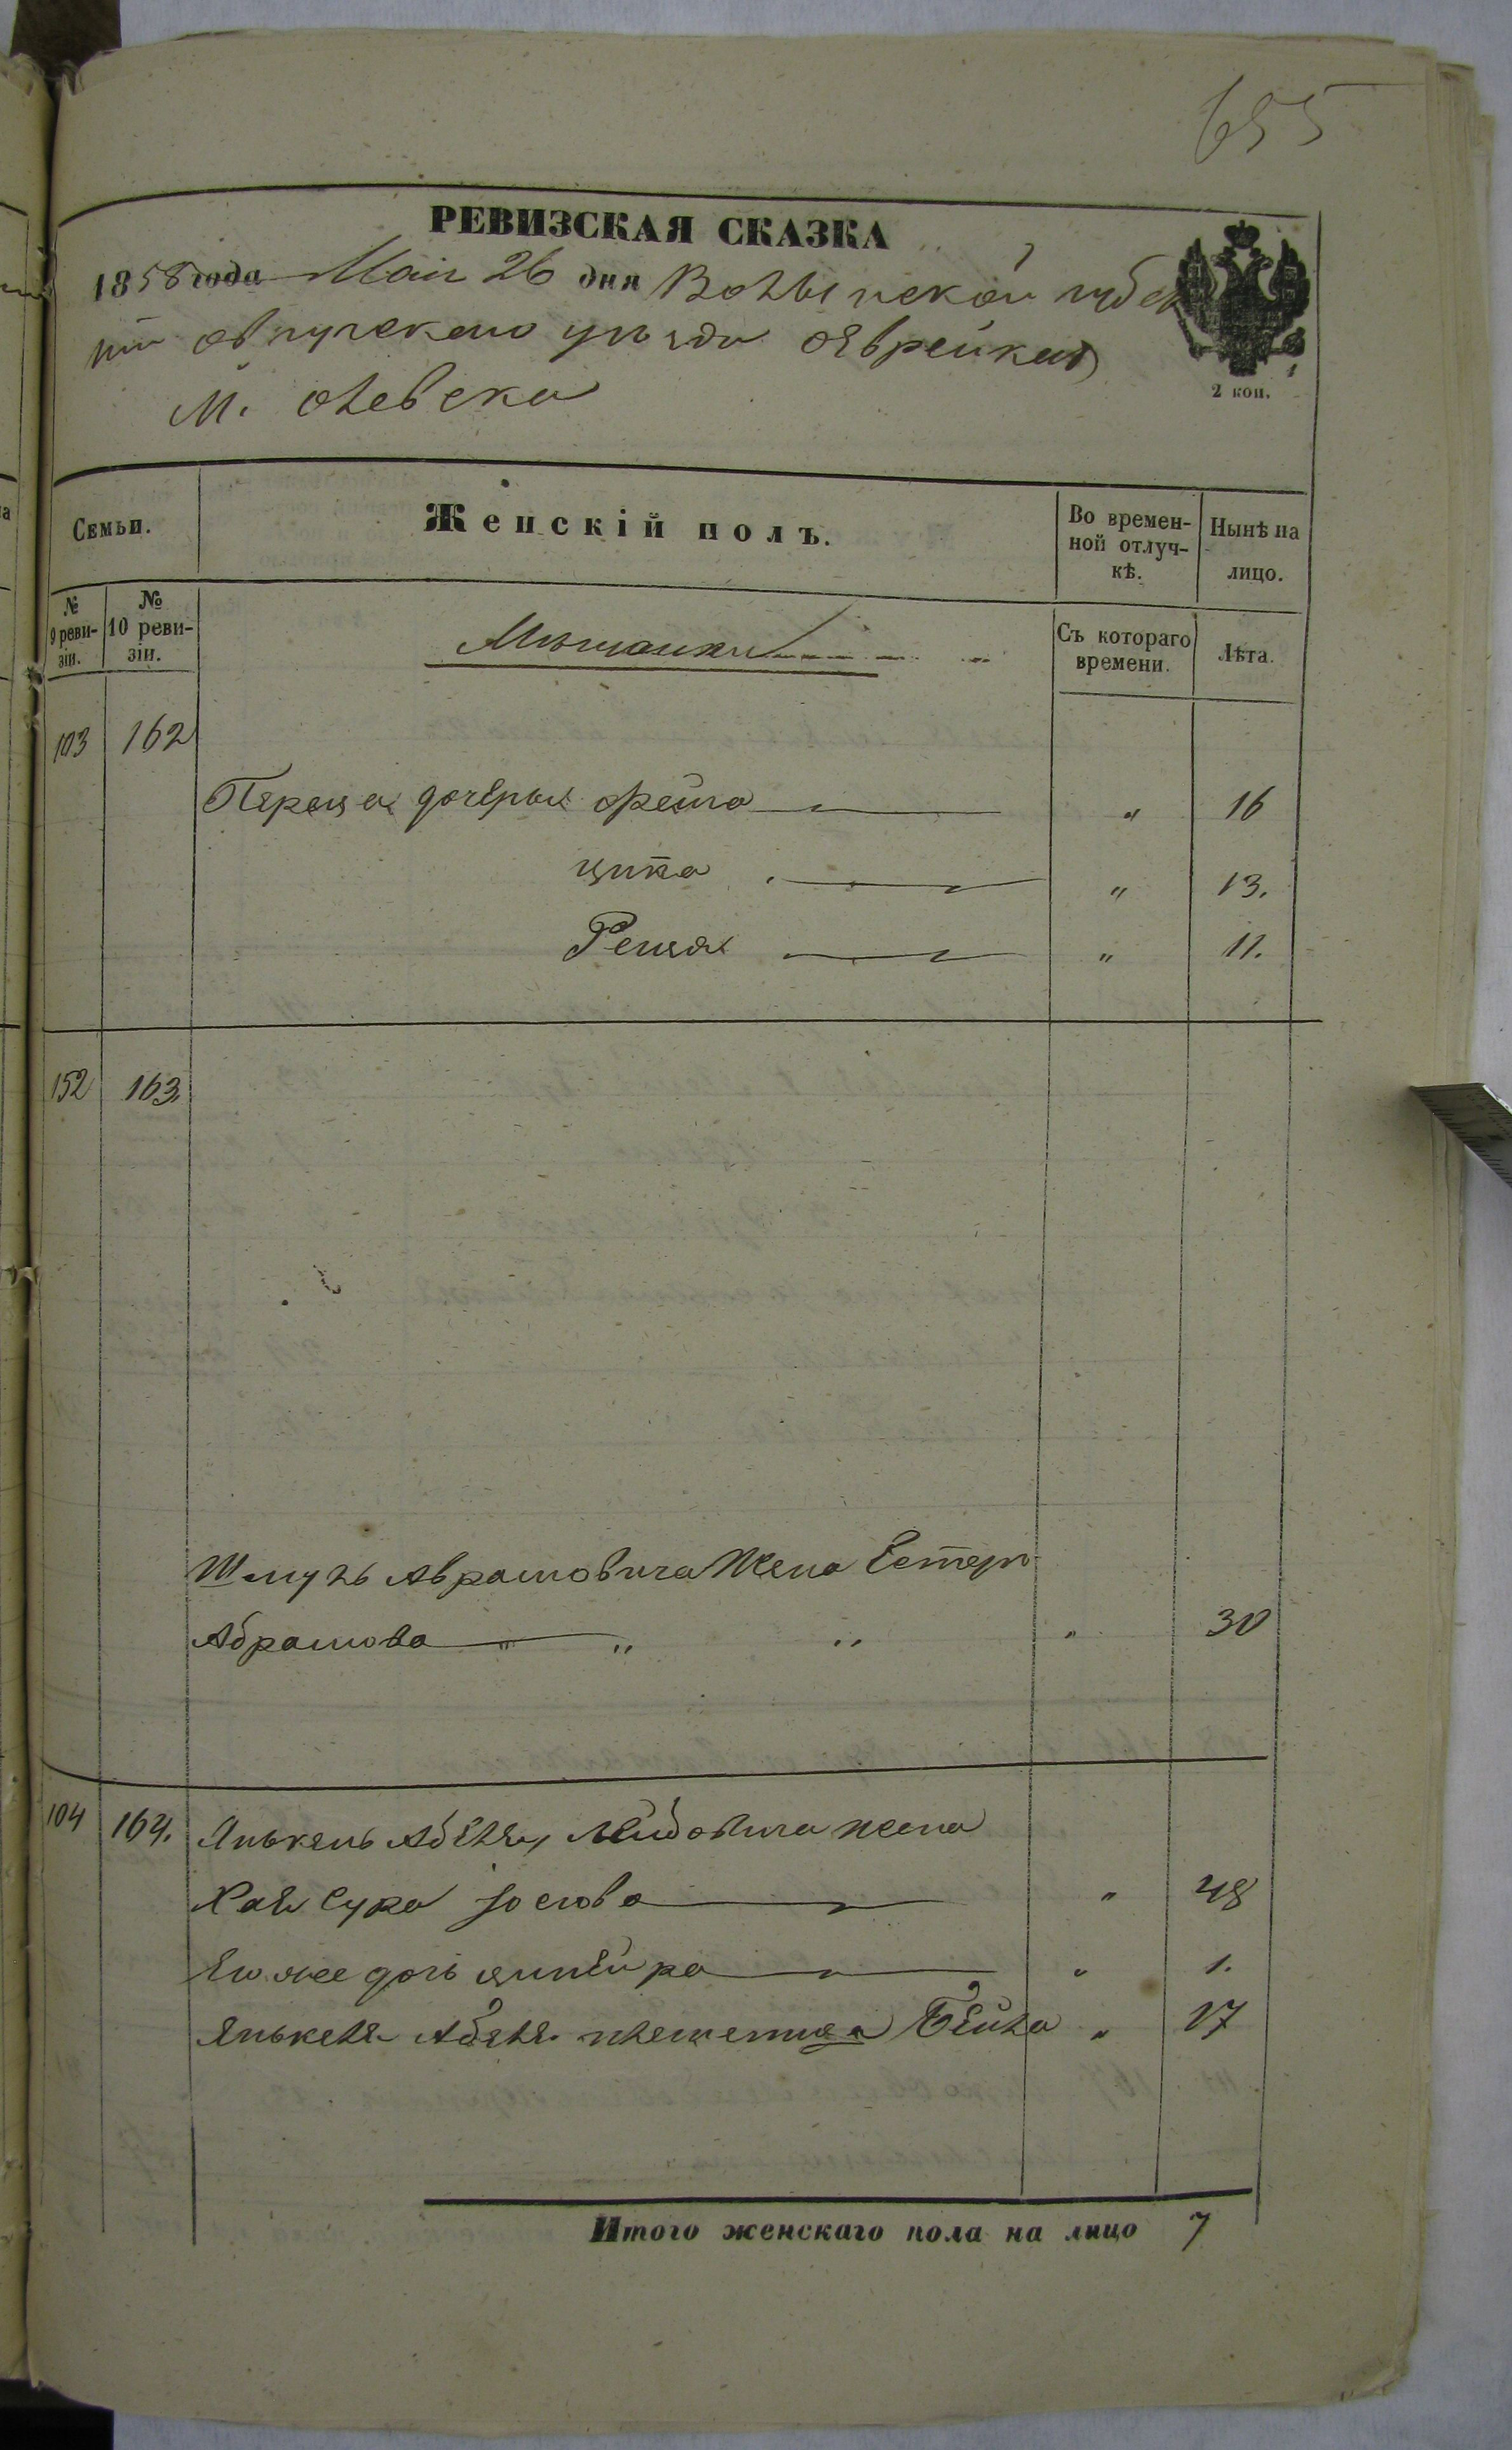 655
РЕВИЗСКАЯ СКАЗКА
1858 года Мая 26 дня Волынской губер
нiи овручскаго уѣзда о Еврейкахъ
м. олевска
2 коп.
Семьи.
Женскій полъ.
Во времен-
ной отлуч-
кѣ.
Нынѣ на
лицо.
№
9 реви-
зіи.
№
10 реви-
зіи.
Мѣщанки
Съ котораго
времени.
Лѣта.
103 162
Переца дочерыи Фейга " 16
ципа " 13.
Рейзя " 11.
152 163.
Шмуль Аврамовича Жена Естеръ
Абрамова " " " " 30
104 164. Янькель Абеля Лейбовича жена
Хая Сура Іосіова " 48
Его же дочь ципейра " 1.
Янькеля Абеля племенница Бейла " 17
Итого женскаго пола на лицо 7